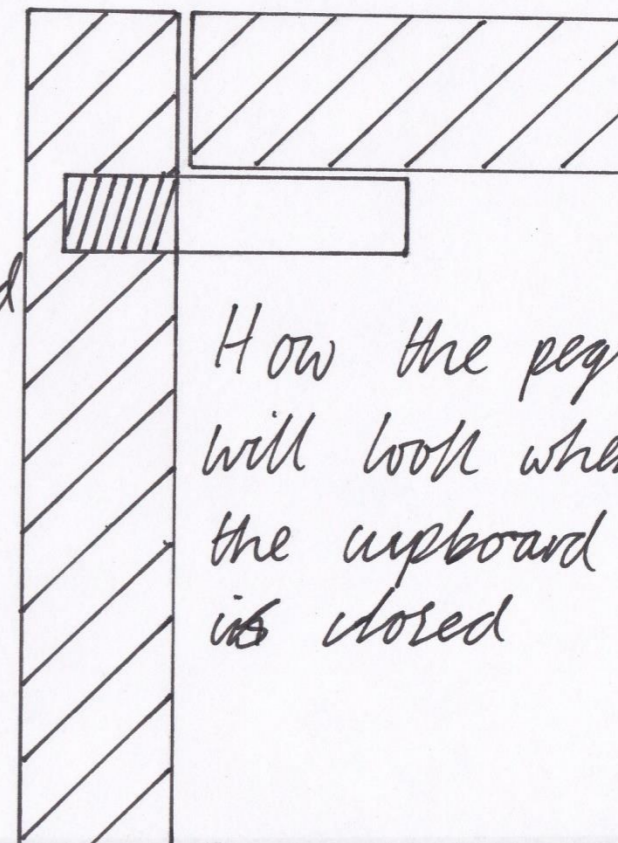 How the peg
will look when
the cupboard
is closed